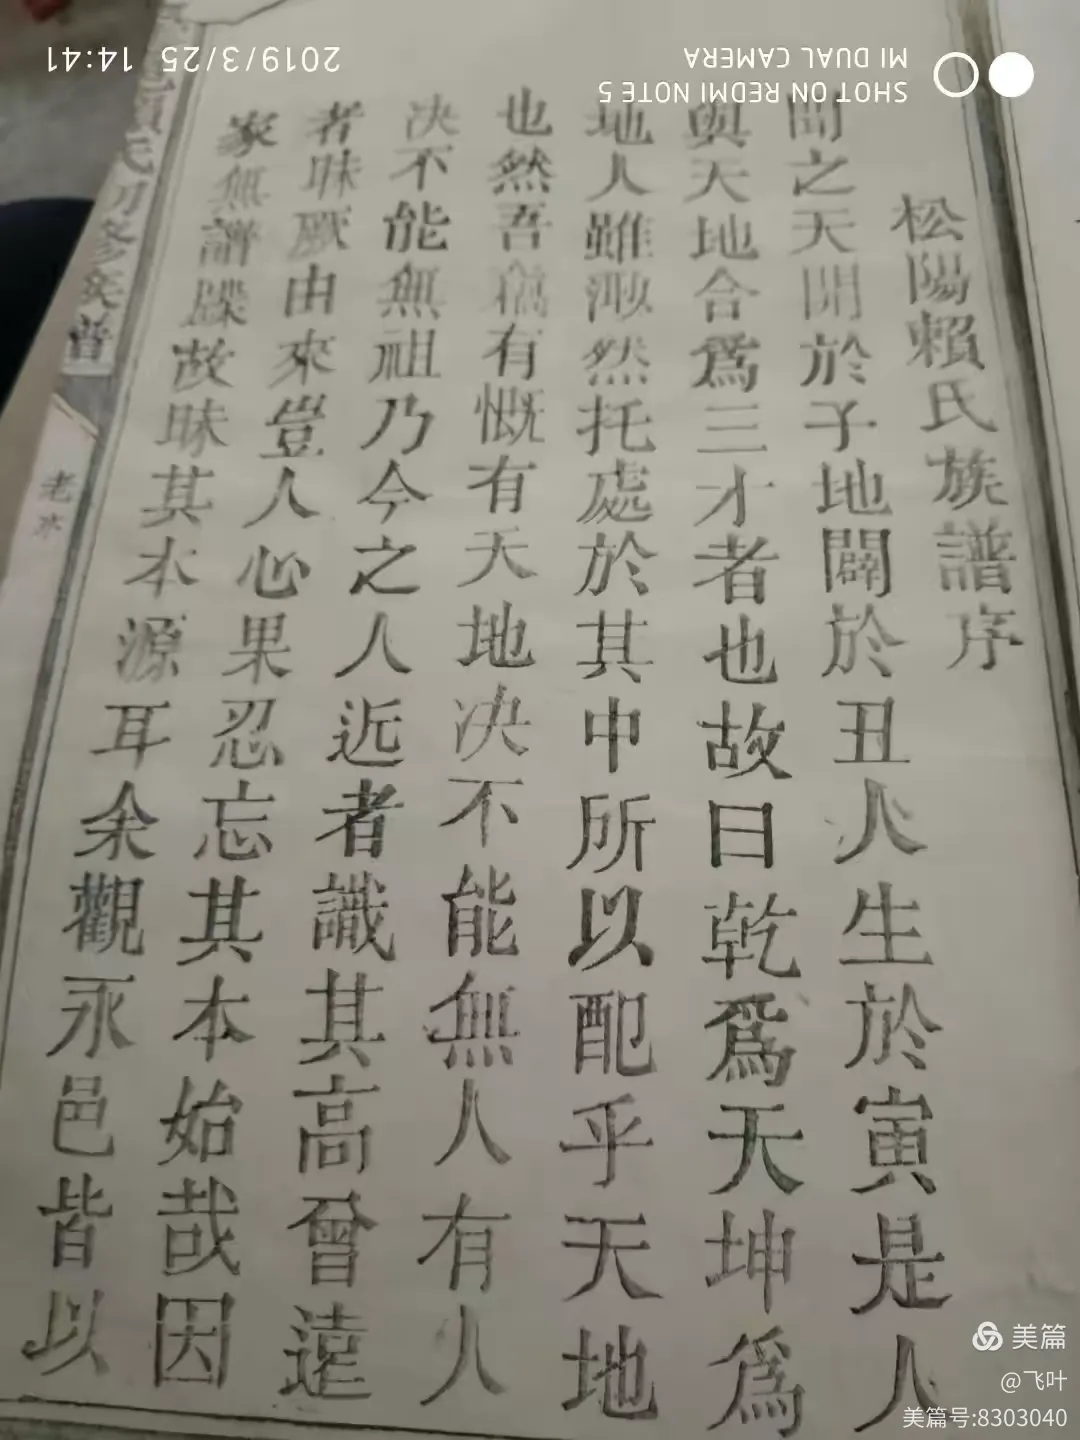 松陽賴氏族譜序
聞之天開於子地闢於丑人生於寅是人
與天地合爲三才者也故曰乾爲天坤爲
地人雖渺然托處於其中所以配乎天地
也然吾竊有慨有天地决不能無人有人
决不能無祖乃今之人近者識其高曾遠
者昧厥由來豈人心果忍忘其本始哉因
家無譜牒故昧其本源耳余觀永邑皆以
氏初修族譜
老水
2019/3/25 14:41
SHOT ON REDMI NOTE 5
MI DUAL CAMERA
美篇
@飞叶
美篇号:8303040